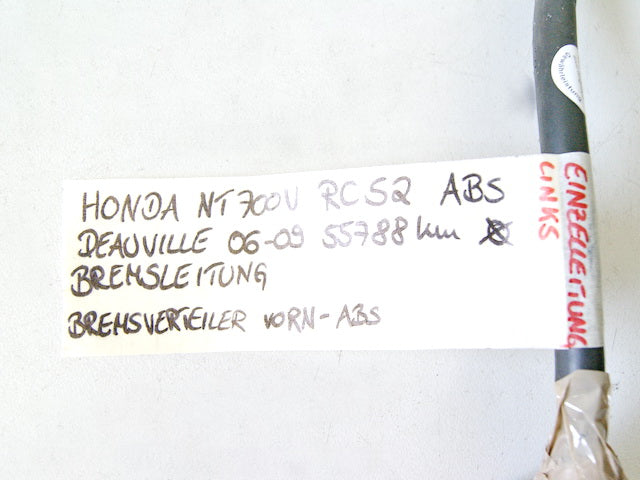 HONDA NT700V RC52 ABS
DEAUVILLE 06-09 55788 km
BREMSLEITUNG
BREMSVERTEILER VORN-ABS
EINZELLEITUNG
LINKS